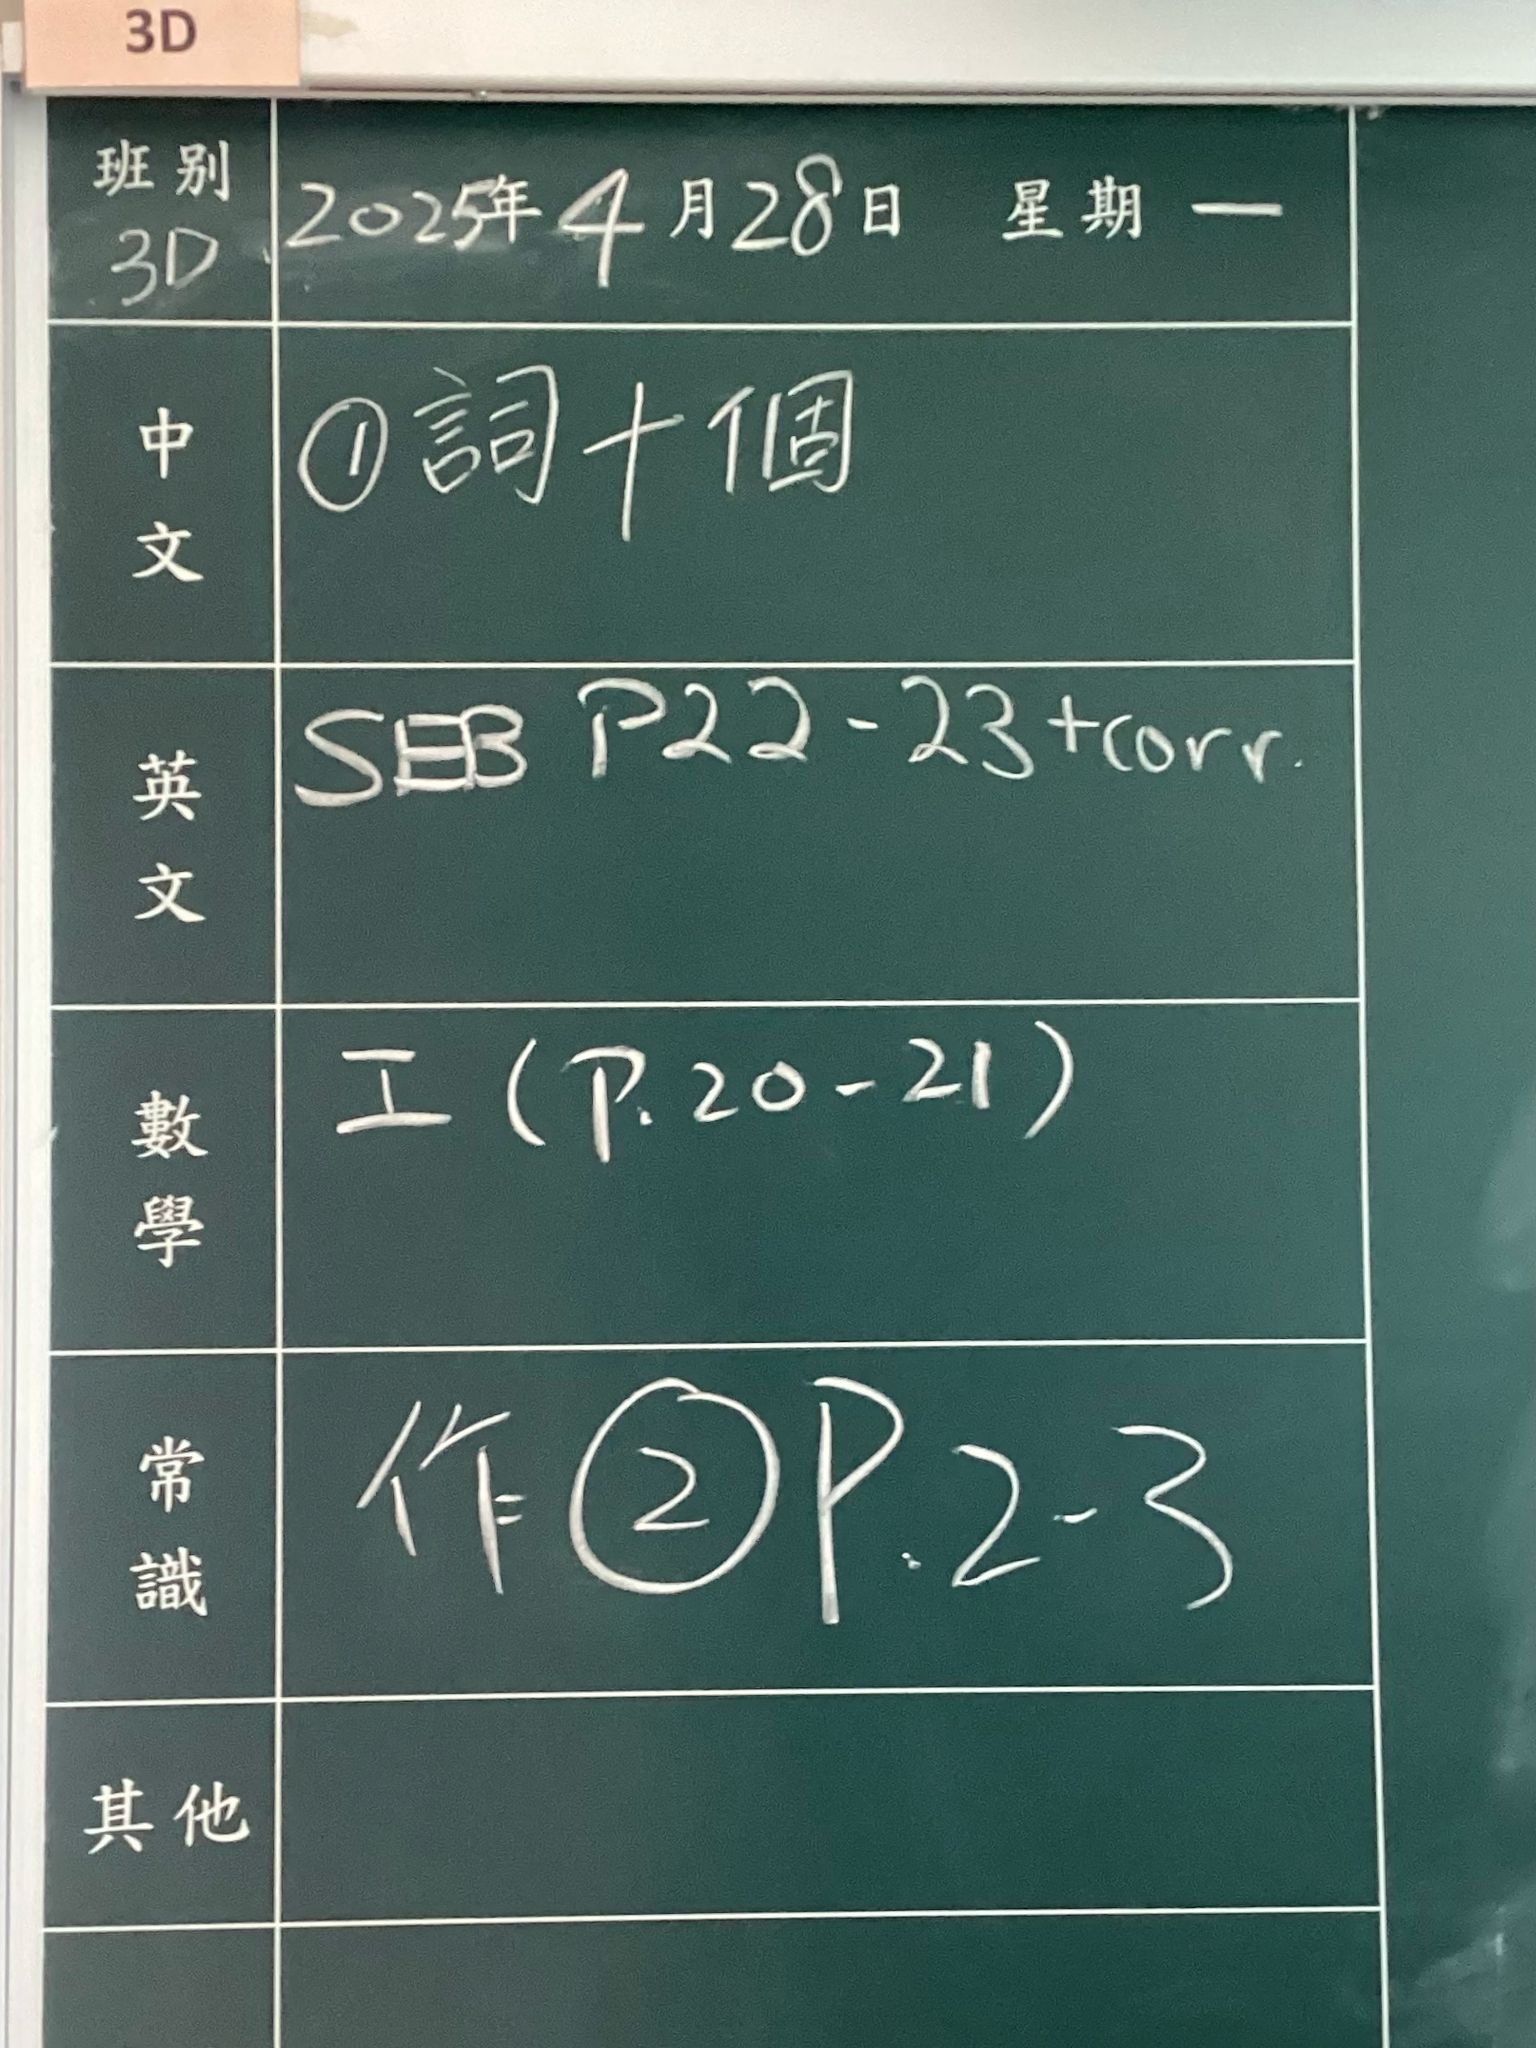 3D
班別 3D
2025年4月28日 星期一
中文
①詞十個
英文
SEB P22-23+corr.
數學
工(P.20-21)
常識
作②P.2-3
其他